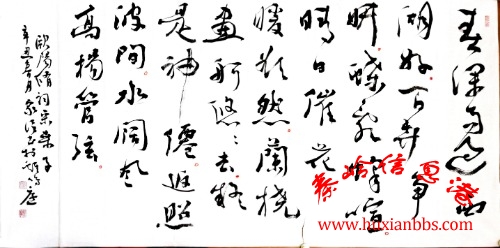 春深雨过西
湖好百卉争
妍蝶乱蜂喧
晴日催花
暖欲然蘭桡
畫舸悠悠去疑
是神僊返照
波间水阔风
高揚管弦
欧陽脩词采桑子
辛丑春月
信 惠
www.hbxianbbs.com